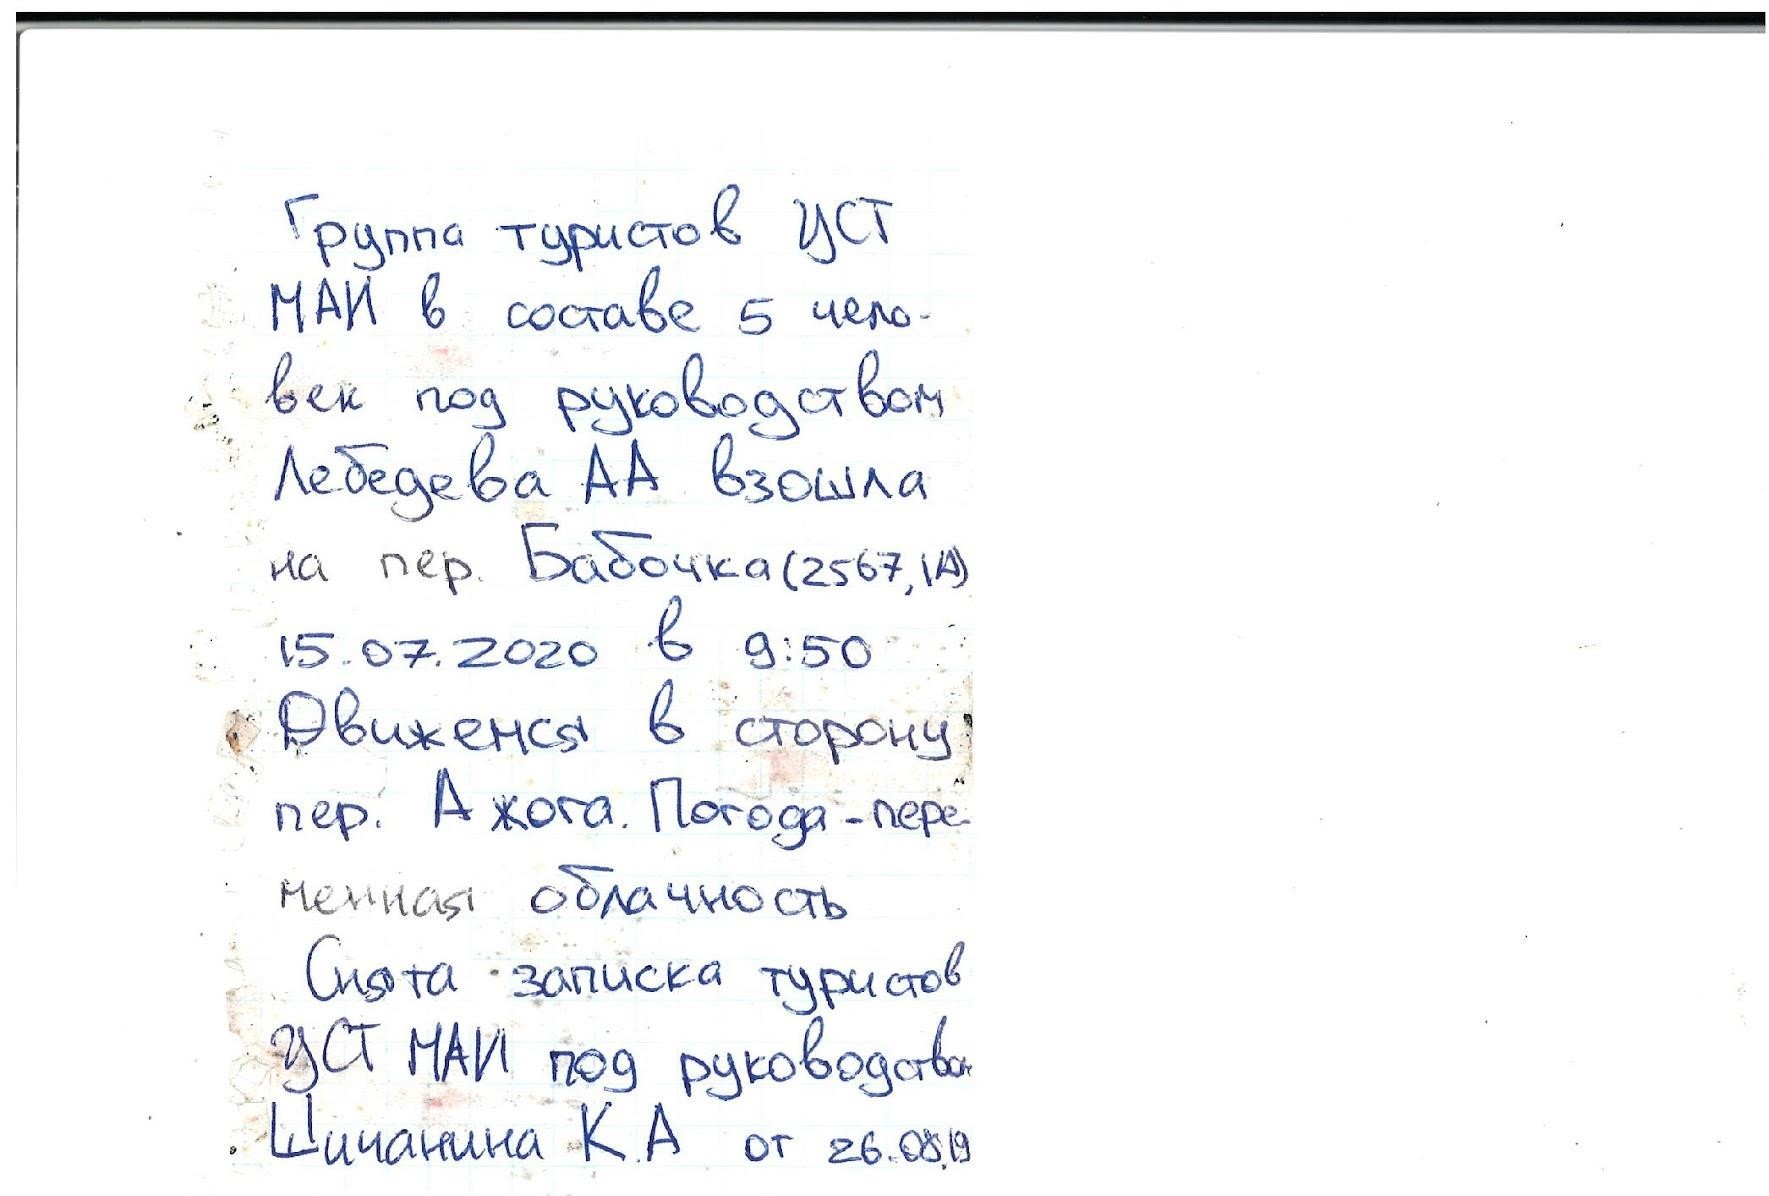 Группа туристов УСТ
МАИ в составе 5 чело-
век под руководством
Лебедева АА взошла
на пер. Бабочка (2567, 1А)
15.07.2020 в 9:50
Движемся в сторону
пер. Ажога. Погода - пере-
менная облачность
Снята записка туристов
УСТ МАИ под руководством
Шичанина К.А от 26.08.19